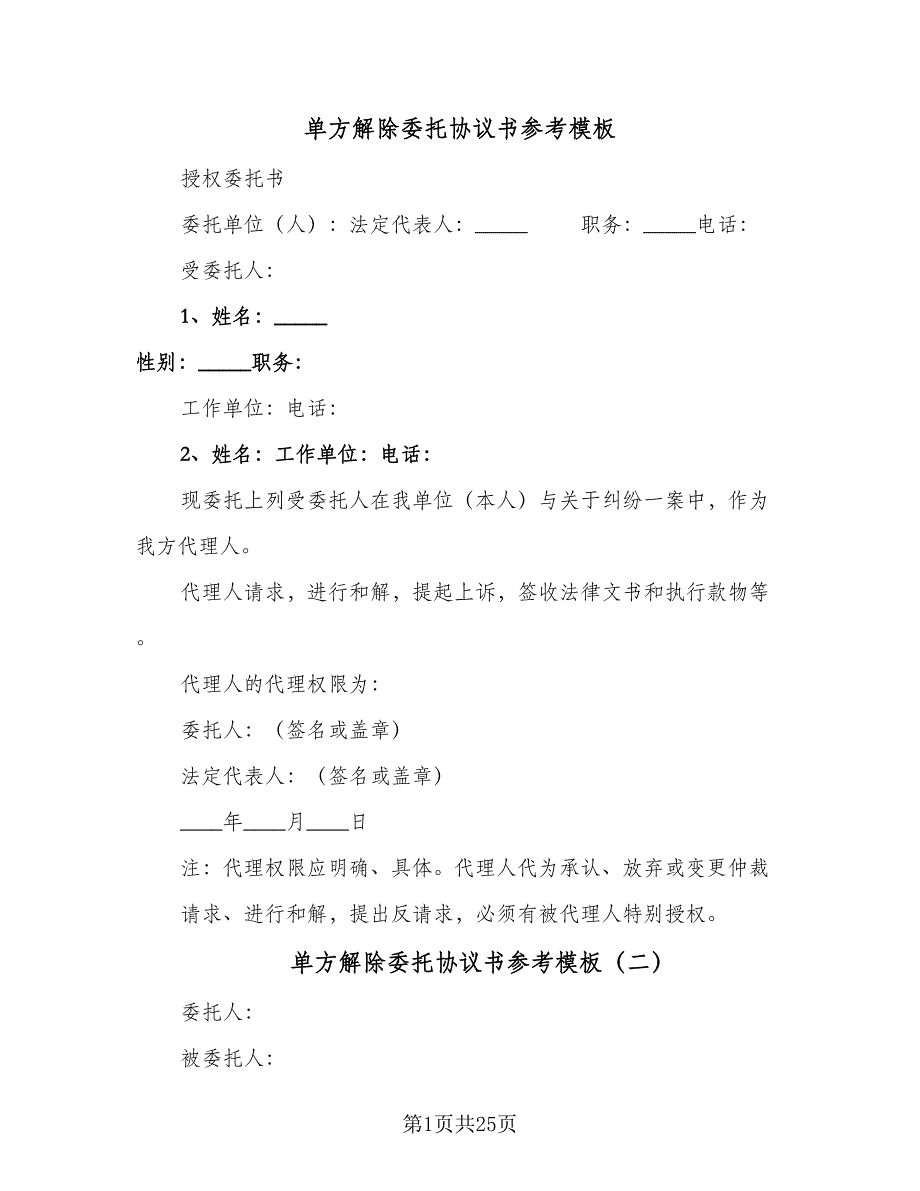 单方解除委托协议书参考模板
授权委托书
委托单位（人）：法定代表人：_____ 职务：_____电话：
受委托人：
1、姓名：_____
性别：_____职务：
工作单位：电话：
2、姓名：工作单位：电话：
现委托上列受委托人在我单位（本人）与关于纠纷一案中，作为
我方代理人。
代理人请求，进行和解，提起上诉，签收法律文书和执行款物等
。
代理人的代理权限为：
委托人：（签名或盖章）
法定代表人：（签名或盖章）
____年____月____日
注：代理权限应明确、具体。代理人代为承认、放弃或变更仲裁
请求、进行和解，提出反请求，必须有被代理人特别授权。
单方解除委托协议书参考模板（二）
委托人：
被委托人：
第1页共25页